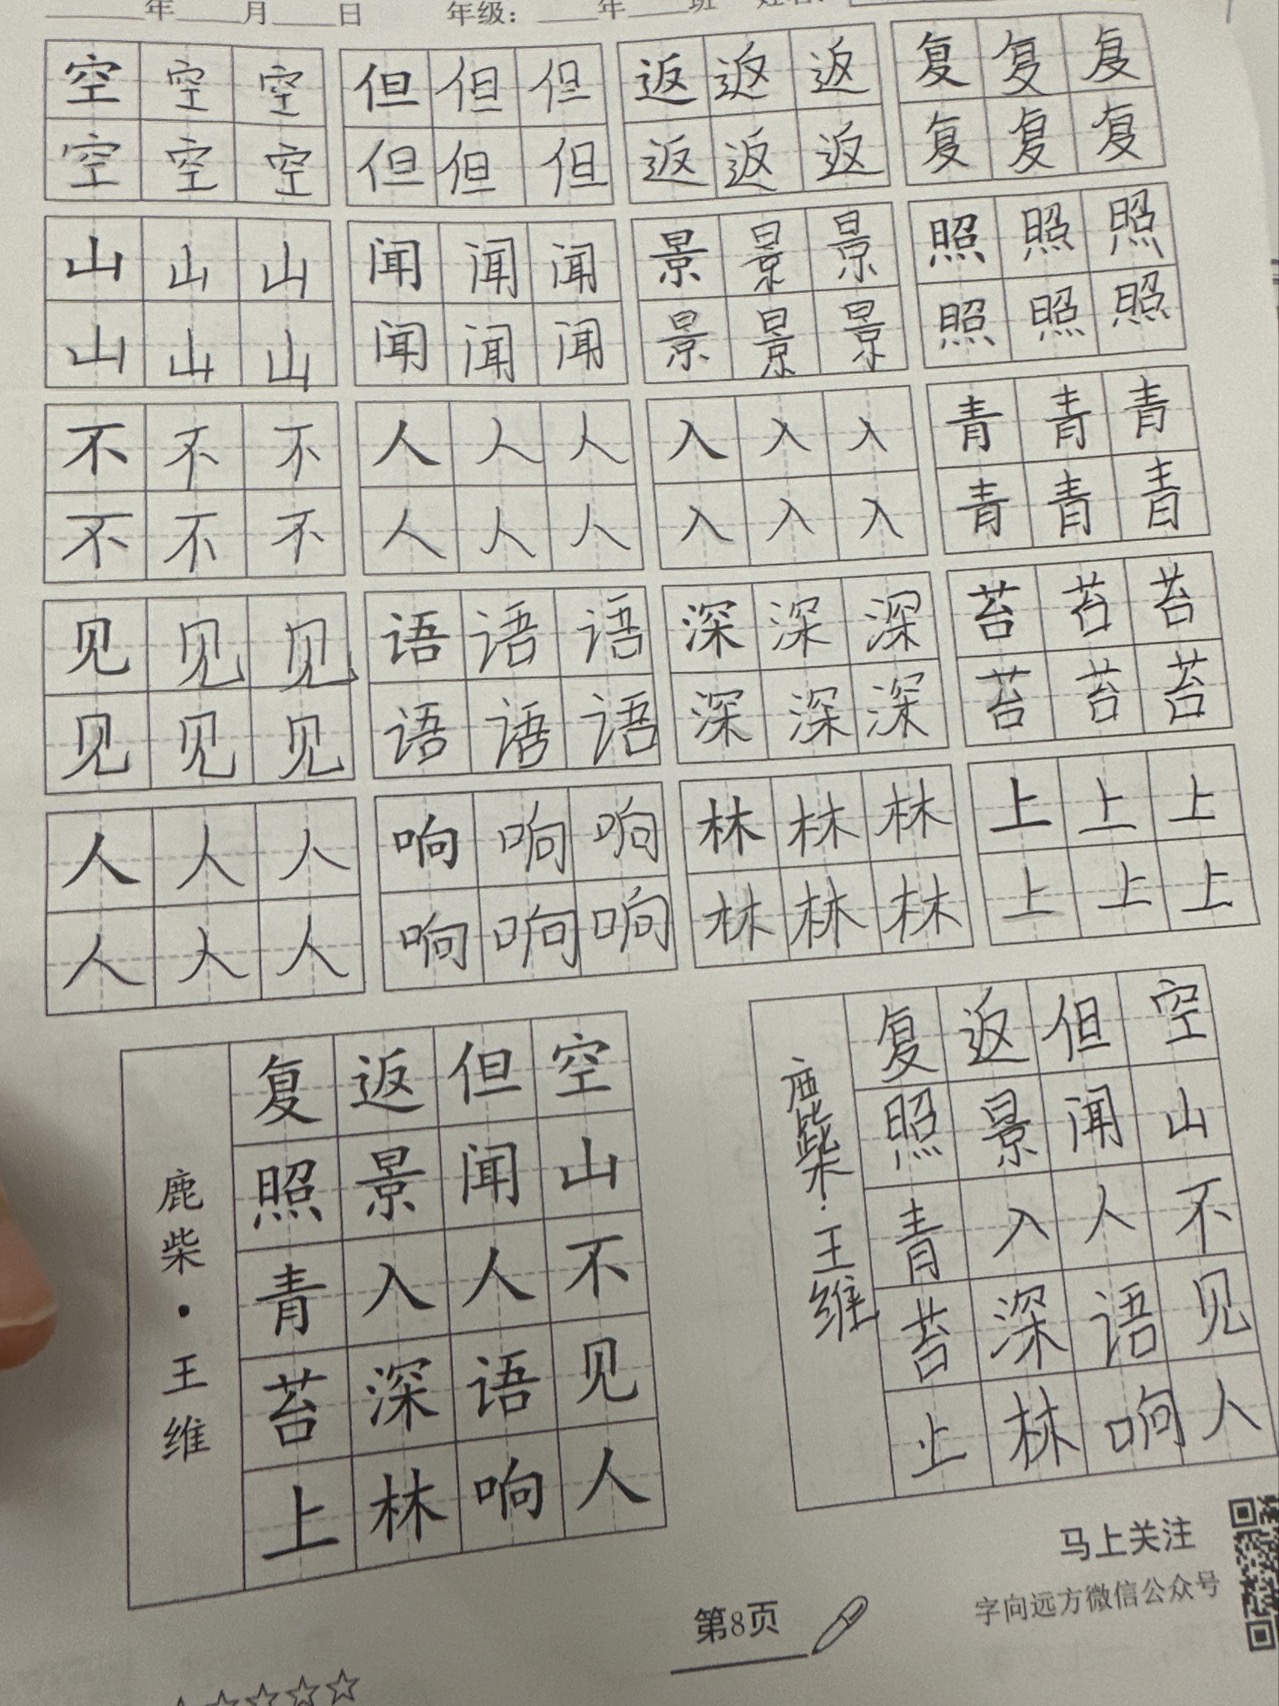 年 月 日 年级： 年 班
空 空 空 但 但 但 返 返 返 复 复 复
空 空 空 但 但 但 返 返 返 复 复 复
山 山 山 闻 闻 闻 景 景 景 照 照 照
山 山 山 闻 闻 闻 景 景 景 照 照 照
不 不 不 人 人 人 入 入 入 青 青 青
不 不 不 人 人 人 入 入 入 青 青 青
见 见 见 语 语 语 深 深 深 苔 苔 苔
见 见 见 语 语 语 深 深 深 苔 苔 苔
人 人 人 响 响 响 林 林 林 上 上 上
人 人 人 响 响 响 林 林 林 上 上 上
空山不见人
但闻人语响
返景入深林
复照青苔上
鹿柴·王维
空山不见人
但闻人语响
返景入深林
复照青苔上
柴·王维
马上关注
字向远方微信公众号
第8页